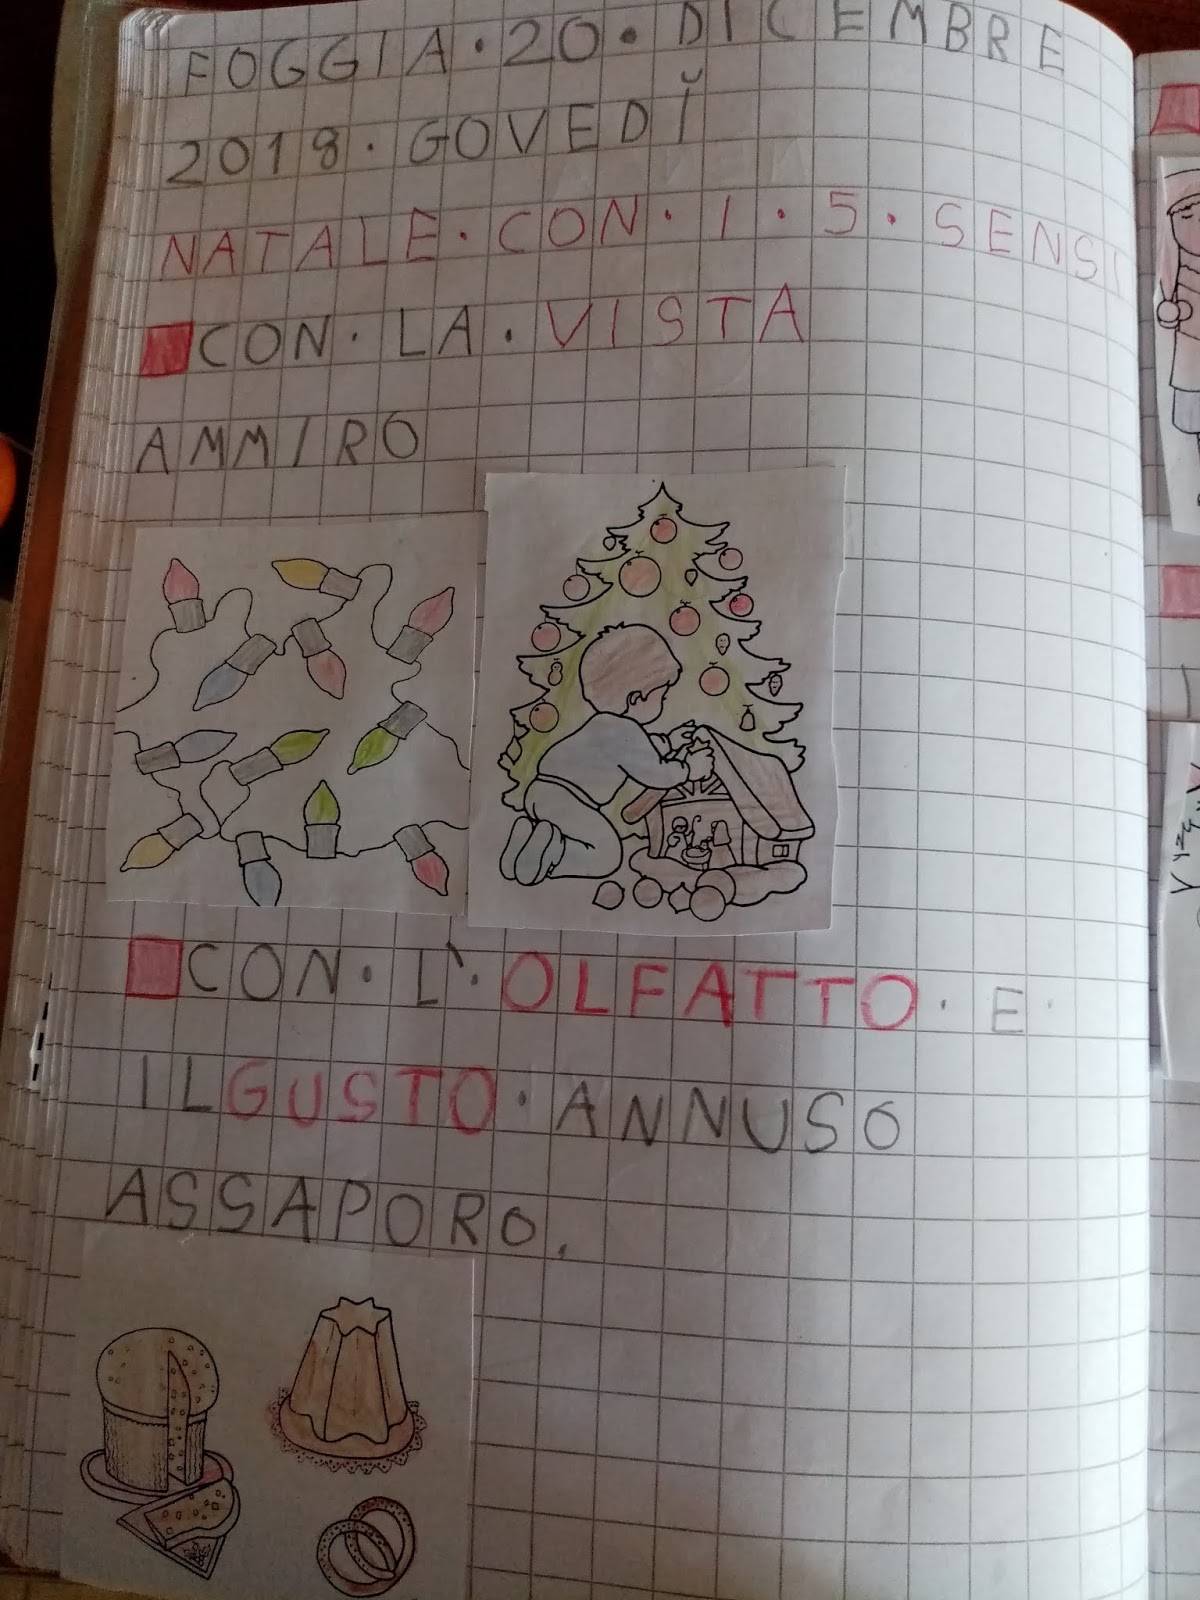 FOGGIA · 20 · DICEMBRE
2018 · GOVEDĬ
NATALE · CON · I · 5 · SENSI
CON · LA · VISTA
AMMIRO
CON · L' · OLFATTO · E ·
IL GUSTO · ANNUSO
ASSAPORO.